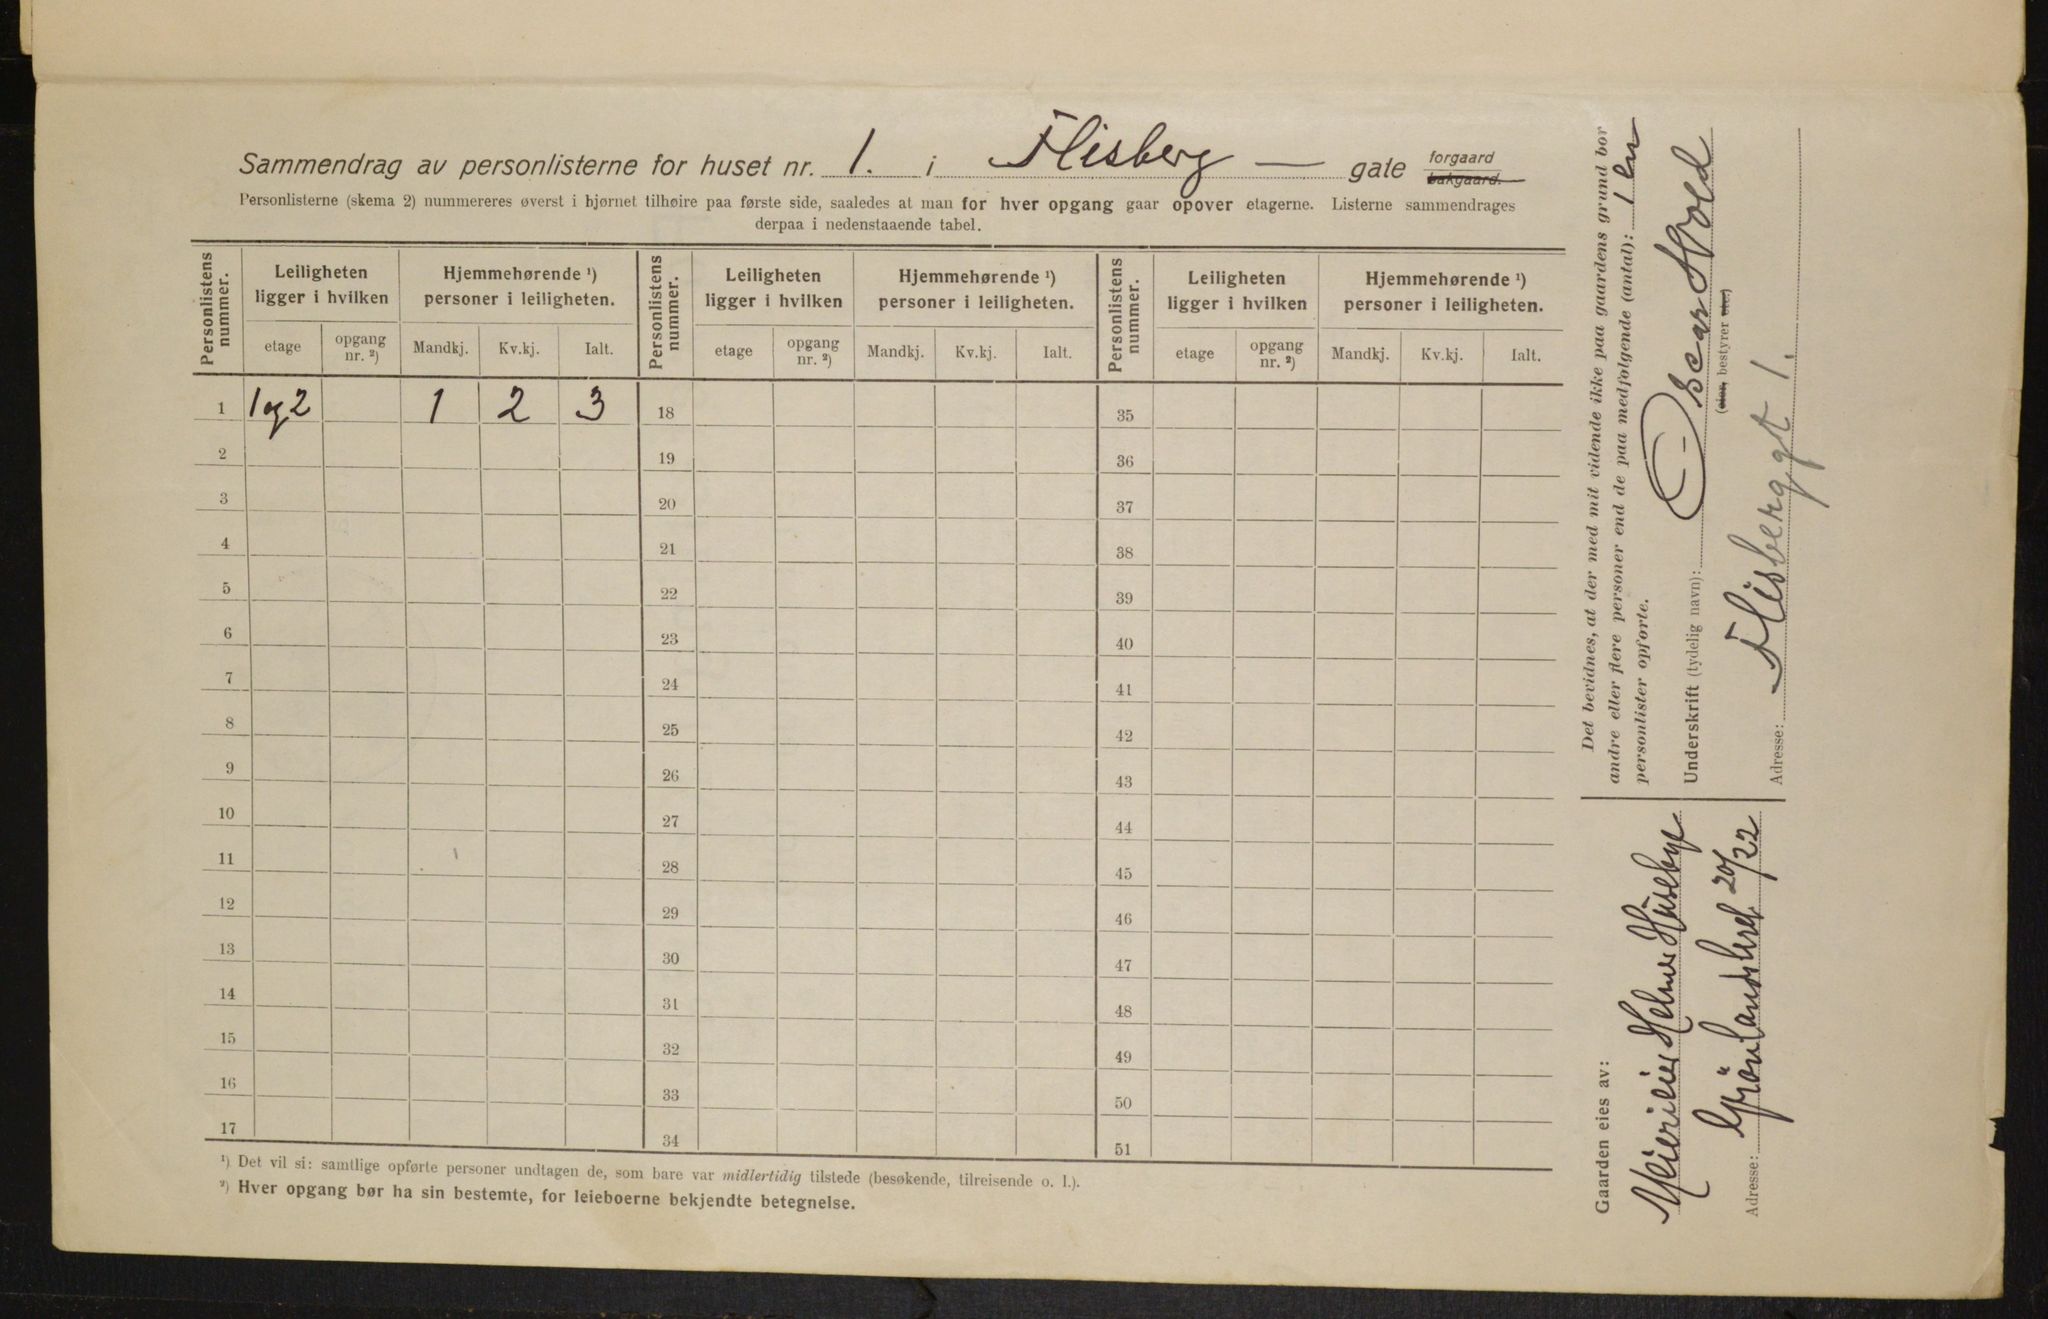 Sammendrag av personlisterne for huset nr. 1. i Flisberg — gate forgaard bakgaard.
Personlisterne (skema 2) nummereres øverst i hjørnet tilhøire paa første side, saaledes at man for hver opgang gaar opover etagerne. Listerne sammendrages
derpaa i nedenstaaende tabel.
Personlistens nummer. Leiligheten ligger i hvilken Hjemmehørende ¹) personer i leiligheten. Personlistens nummer. Leiligheten ligger i hvilken Hjemmehørende ¹) personer i leiligheten. Personlistens nummer. Leiligheten ligger i hvilken Hjemmehørende ¹) personer i leiligheten.
etage opgang nr. ²) Mandkj. Kv.kj. Ialt. etage opgang nr. ²) Mandkj. Kv.kj. Ialt. etage opgang nr. ²) Mandkj. Kv.kj. Ialt.
1 1 og 2 1 2 3 18 35
2 19 36
3 20 37
4 21 38
5 22 39
6 23 40
7 24 41
8 25 42
9 26 43
10 27 44
11 28 45
12 29 46
13 30 47
14 31 48
15 32 49
16 33 50
17 34 51
¹) Det vil si: samtlige opførte personer undtagen de, som bare var midlertidig tilstede (besøkende, tilreisende o. l.).
²) Hver opgang bør ha sin bestemte, for leieboerne bekjendte betegnelse.
Det bevidnes, at der med mit vidende ikke paa gaardens grund bor
andre eller flere personer end de paa medfølgende (antal): 1 en
personlister opførte.
Underskrift (tydelig navn): Oscar Hvold
(eier, bestyrer etc.)
Adresse: Flisberggt 1.
Gaarden eies av:
Meierieier Helmer Huseby
Adresse: Grönlandsleret 20/22